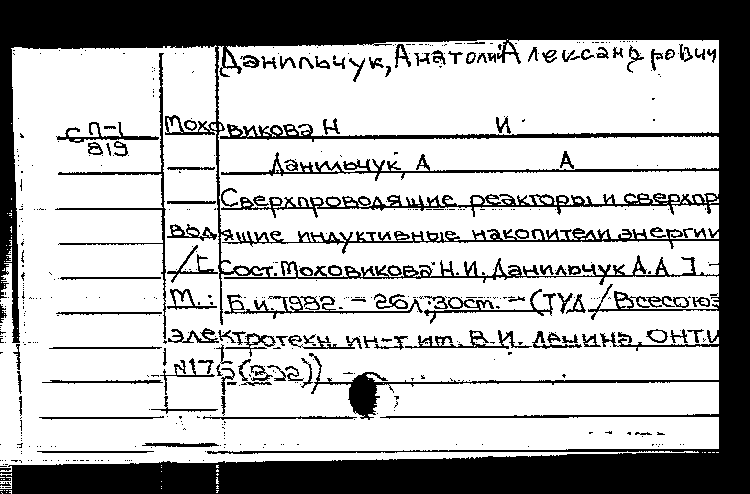 Данильчук, Анатолий Александрович
С П-1
819
Моховикова Н И.
Данильчук, А А
Сверхпроводящие реакторы и сверхпро
водящие индуктивные накопители энергии
/[Сост. Моховикова Н.И., Данильчук А.А.]. -
М.: Б.и, 1982. - 26л.; 30см. - (ТУД / Всесоюз
электротехн. ин-т им. В.И. Ленина, ОНТИ
№175(832)).